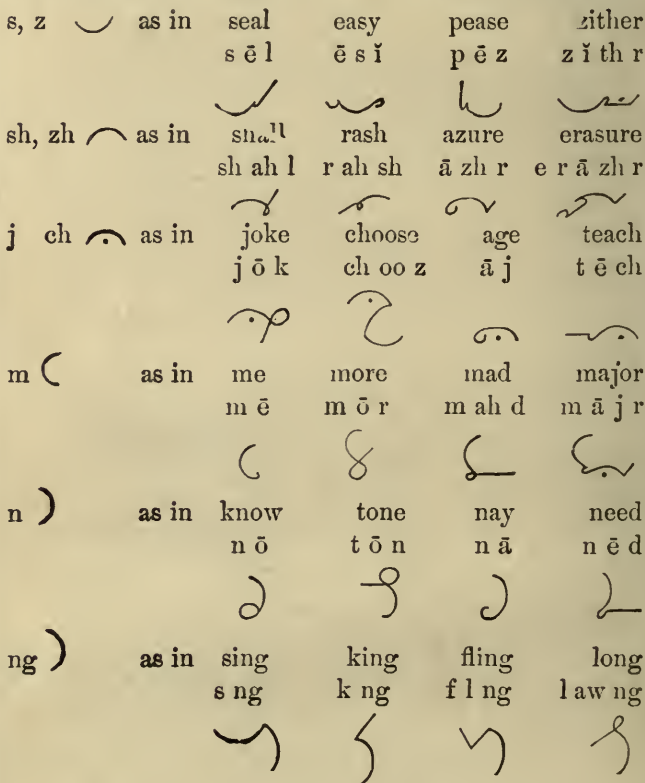 s, z as in seal easy pease zither
s ē l ē s ĭ p ē z z ĭ th r
sh, zh as in shall rash azure erasure
sh ah l r ah sh ā zh r e r ā zh r
j ch as in joke choose age teach
j ō k ch oo z ā j t ē ch
m as in me more mad major
m ē m ō r m ah d m ā j r
n as in know tone nay need
n ō t ō n n ā n ē d
ng as in sing king fling long
s ng k ng f l ng l aw ng